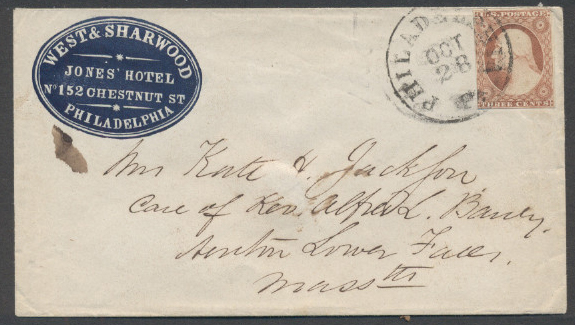 WEST & SHARWOOD
JONES' HOTEL
No 152 CHESTNUT ST
PHILADELPHIA
PHILAD
OCT
28
U.S. POSTAGE
THREE CENTS
Mrs Kate H. Jackson
Care of Rev. Alfred L. Baury.
Newton Lower Falls.
Masstts